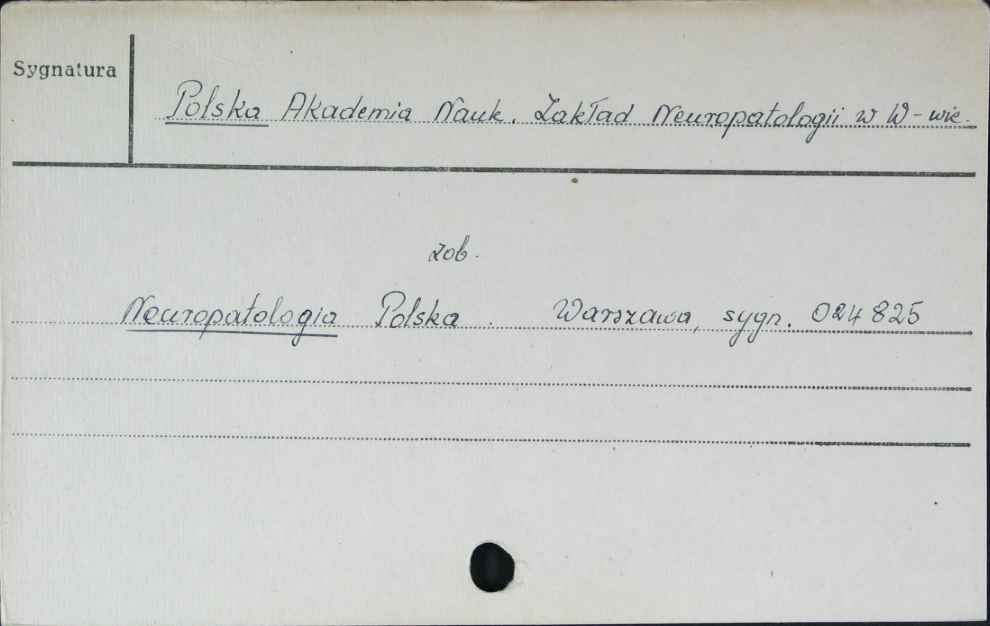 Sygnatura
Polska Akademia Nauk. Zakład Neuropatologii w W-wie.
zob.
Neuropatologia Polska. Warszawa, sygn. 024825